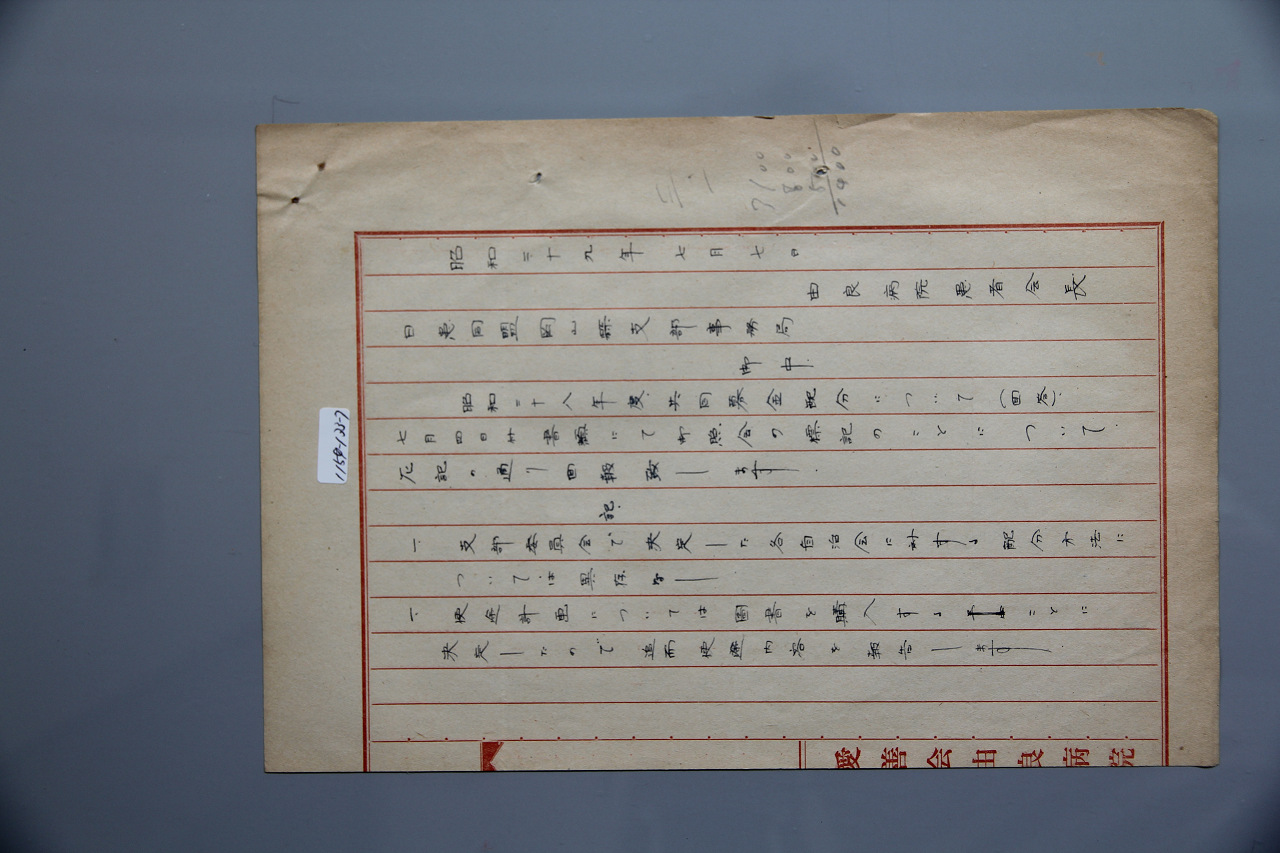 昭和三十九年七月七日
由良病院患者会長
日患同盟岡山縣支部事務局
御中
昭和三十八年度共同募金配分について（回答）
七月四日付書類にて御照会の標記のことについて
左記の通り回報致します.
記.
一. 支部委員会で決定した各自治会に対する配分方法に
ついては異存なし
一. 使途計画については図書を購入することに
決定したので追而使途内容を報告します
愛善会由良病院
1158-123-7